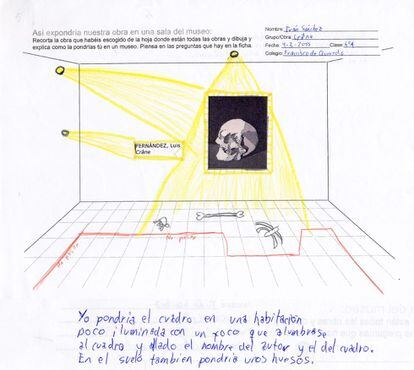 Así expondría nuestra obra en una sala del museo:
Recorta la obra que habéis escogido de la hoja donde están todas las obras y dibuja y
explica como la pondrías tú en un museo. Piensa en las preguntas que hay en la ficha.
Nombre: Iván Sánchez
Grupo/Obra: Cráne
Fecha: 4-2-2015 Clase: 6ºA
Colegio: Francisco de Quevedo
FERNÁNDEZ, Luis
Crâne
No pasar
No pasar
Yo pondría el cuadro en una habitación
poco iluminada con un foco que alumbrase
al cuadro y al lado el nombre del autor y el del cuadro.
En el suelo tambien pondría unos huesos.